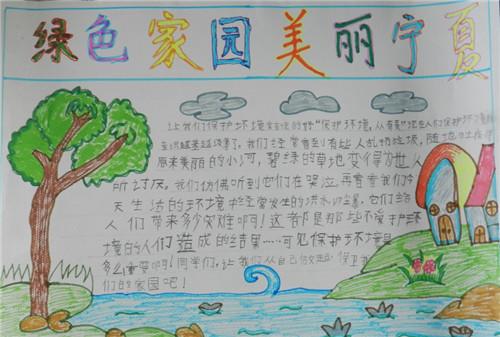 绿色家园美丽宁夏
让我们保护环境 保护环境，从 人们保护环境
我们经常看到有些人乱扔垃圾，随地
原来美丽的小河，碧绿的草地变得为世人
所讨厌。我们仿佛听到它们在哭泣再看看我们今
天生活的环境 经常发生的洪水 它们给
人们带来多少灾难啊！这都是那些不爱护环
境的人们造成的结果……可见保护环境是
多么重要啊！同学们，让我们从自己做起，保卫
们的家园吧！